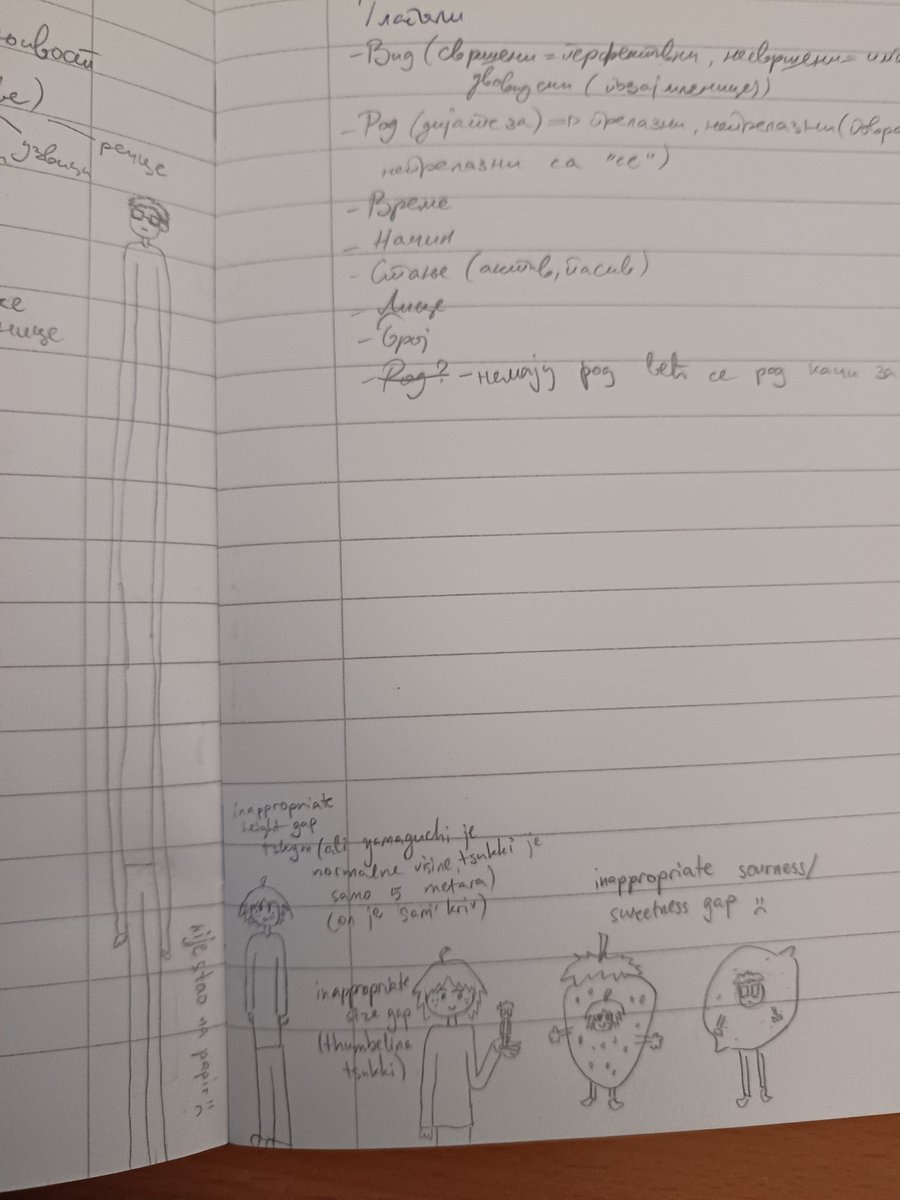 реце
узвици
нице
Глаголи
- Вид (свршени = перфективни, несвршени =
двовидски (позајмљенице))
- Род (дијатеза) => прелазни, непрелазни (повра
непрелазни са "се")
- Време
- Начин
- Стање (актив, пасив)
- Лице
- Број
- Род? - немају род већ се род каки за
inappropriate
height gap
tskym (ali yamaguchi je
normalne visine, tsukki je
samo 5 metara)
(on je sam kriv)
nije stao na papir :(
inappropriate
size gap
(thumbelina
tsukki)
inappropriate sourness/
sweetness gap :(